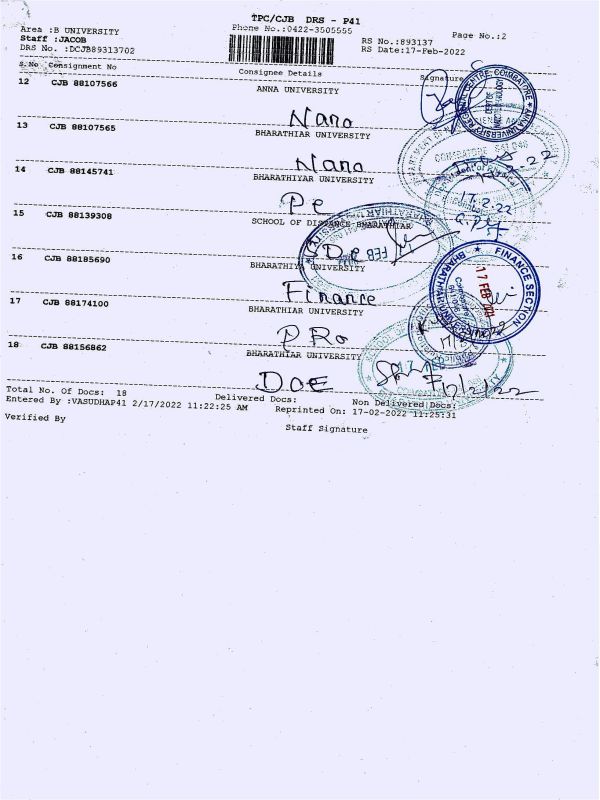 TPC/CJB DRS - P41
Area :B UNIVERSITY Phone No.:0422-3505555 Page No.:2
Staff :JACOB RS No.:893137
DRS No. :DCJB89313702 RS Date:17-Feb-2022
S.No Consignment No Consignee Details Signature
12 CJB 88107566 ANNA UNIVERSITY
Nano
13 CJB 88107565 BHARATHIAR UNIVERSITY
Nano
14 CJB 88145741 BHARATHIYAR UNIVERSITY
Pe
17.2.22
15 CJB 88139308 SCHOOL OF DISTANCE BHARATHIAR
SDe
FEB
16 CJB 88185690 BHARATHIYA UNIVERSITY
FINANCE SECTION
17 FEB
Finance
17 CJB 88174100 BHARATHIAR UNIVERSITY
PRo
18 CJB 88156862 BHARATHIAR UNIVERSITY
DOE 17/2/22
Total No. Of Docs: 18 Delivered Docs: Non Delivered Docs:
Entered By :VASUDHAP41 2/17/2022 11:22:25 AM Reprinted On: 17-02-2022 11:25:31
Verified By Staff Signature